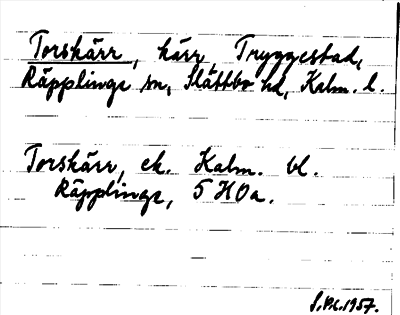 Torskärr, kärr, Tryggestad,
Räpplinge sn, Slättbo hd, Kalm. l.
Torskärr, ek. Kalm. bl.
Räpplinge, 5 H 0a.
S.B.C. 1957.